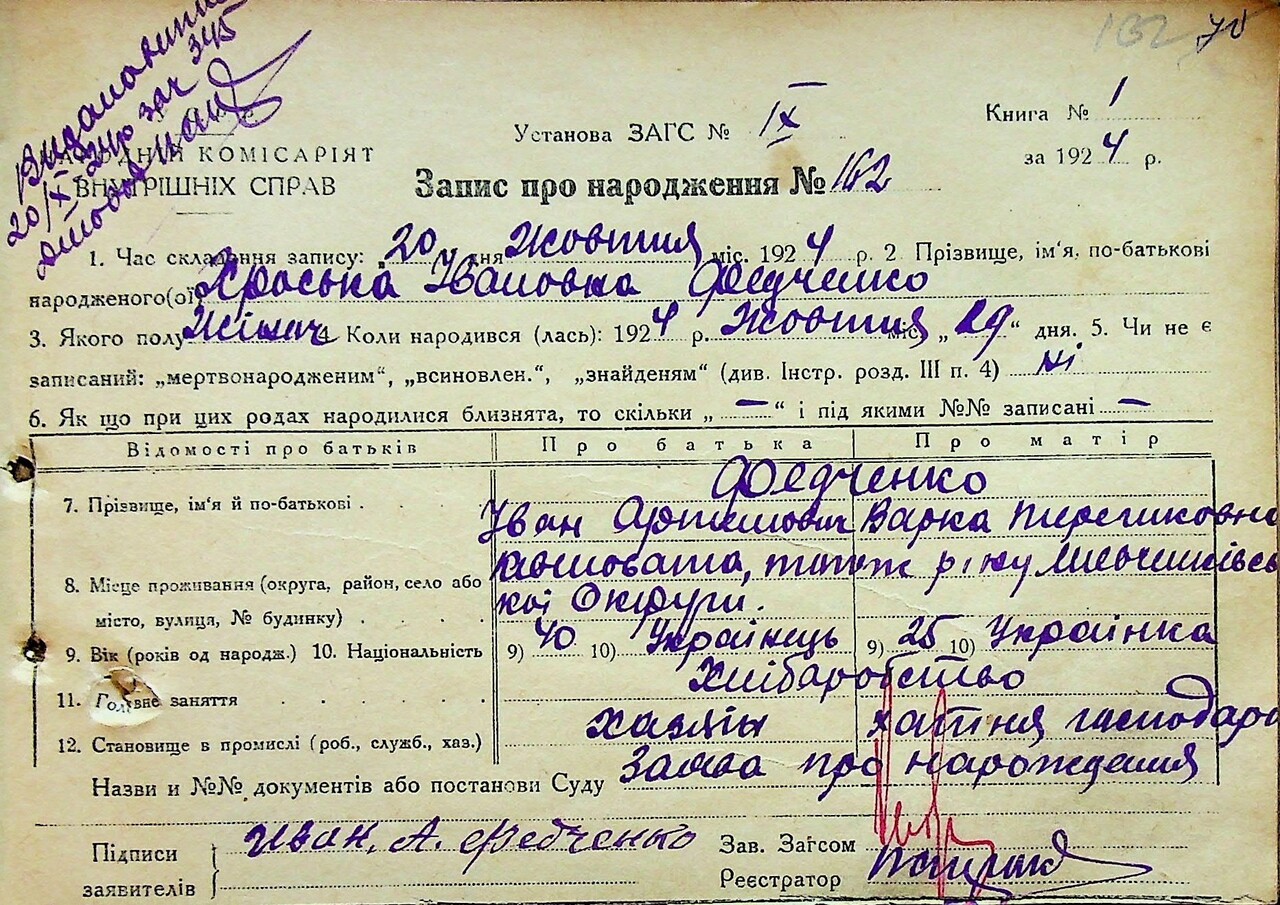 162 70
Видано випис
20/IX 34 р за № 345
Установа ЗАГС № IX
Книга № 1
за 1924 р.
НАРОДНІЙ КОМІСАРІЯТ
ВНУТРІШНІХ СПРАВ
Запис про народження № 162
1. Час складання запису: 20 дня Жовтня міс. 1924 р. 2 Прізвище, ім'я, по-батькові
народженого(ої) Хроська Івановна Федченко
3. Якого полу Жіноч 4 Коли народився (лась): 1924 р. Жовтня міс. „19“ дня. 5. Чи не є
записаний: „мертвонародженим“, „всиновлен.“, „знайденям“ (див. Інстр. розд. III п. 4) Ні
6. Як що при цих родах народилися близнята, то скільки „ — “ і під якими №№ записані —
Відомості про батьків Про батька Про матір
7. Прізвище, ім'я й по-батькові Федченко
Іван Артемович Варка
8. Місце проживання (округа, район, село або
місто, вулиця, № будинку) кої Округи.
9. Вік (років од народж.) 10. Національність 9) 40 10) Українець 9) 25 10) Українка
11. Головне заняття Хліборобство
12. Становище в промислі (роб., служб., хаз.) хазяін хатіня господарк
Назви и №№ документів або постанови Суду Заява про нарождения
Підписи
заявителів
Иван. А. Федченко
Зав. Загсом
Реєстратор